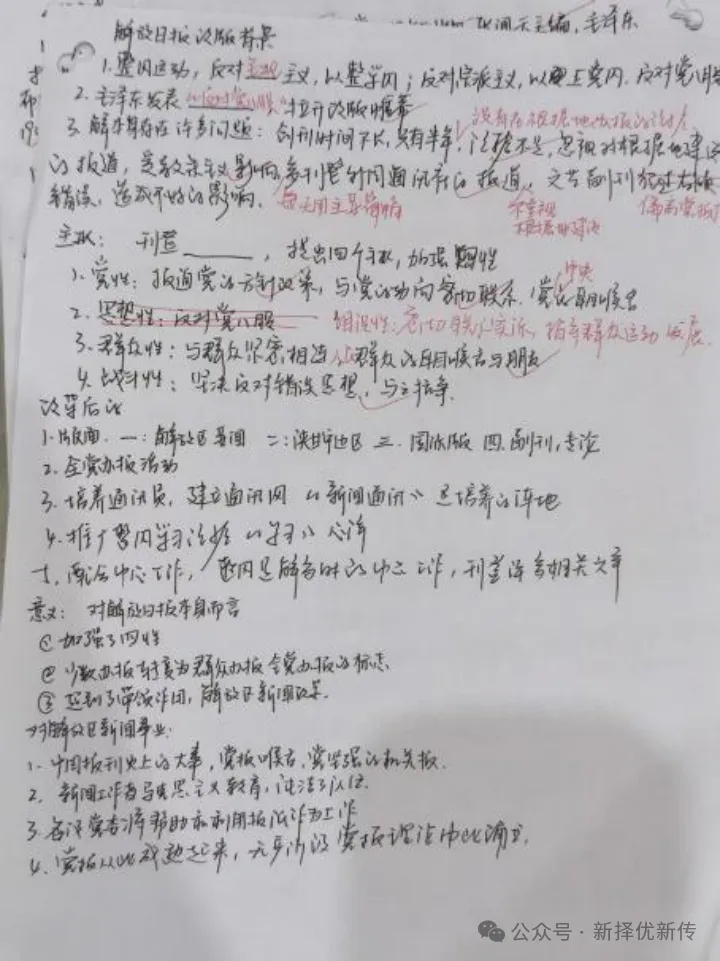 主编,毛泽东
解放日报改版背景
1.整风运动,反对主观主义,以整学风;反对宗派主义,以整党风,反对党八股
2.毛泽东发表《反对党八股》拉开改版帷幕
没有在根据地办报的经验
3.解本身存在许多问题:创刊时间不长,只有半年,经验不足,忽视对根据地建设
的报道,受教条主义影响,多刊登外国通讯社的报道,文艺副刊犯过右倾
错误,造成不好的影响。
每天用主要篇幅
不重视
根据地建设
偏离党报
主张:刊登 ,提出四个主张,加强党性
1.党性:报道党的方针政策,与党的动向密切联系。党中央的耳目喉舌
2.思想性:反对党八股 组织性:密切联系实际,指导群众运动发展
3.群众性:与群众紧密相连,做群众的耳目喉舌与朋友
4.战斗性:坚决反对错误思想,与之抗争
改革后的
1.版面.一:解放区要闻 二:陕甘宁边区 三.国际版 四.副刊,专论
2.全党办报活动
3.培养通讯员,建立通讯网《新闻通讯》是培养的阵地
4.推广整风学习经验《学习》心得
5.配合中心工作,整风是解当时的中心工作,刊登许多相关文章
意义:对解放日报本身而言
①加强了四性
②少数办报转变为群众办报 全党办报的标志
③起到了带领作用,解放区新闻改革
对解放区新闻事业:
1.中国报刊史上的大事,党报喉舌,党坚强的机关报.
2.新闻工作者马克思主义教育,
3.各级党委懂帮助和利用报纸作为工作
4.党报从此成熟起来,无产阶级党报理论由此确立.
公众号·新择优新传